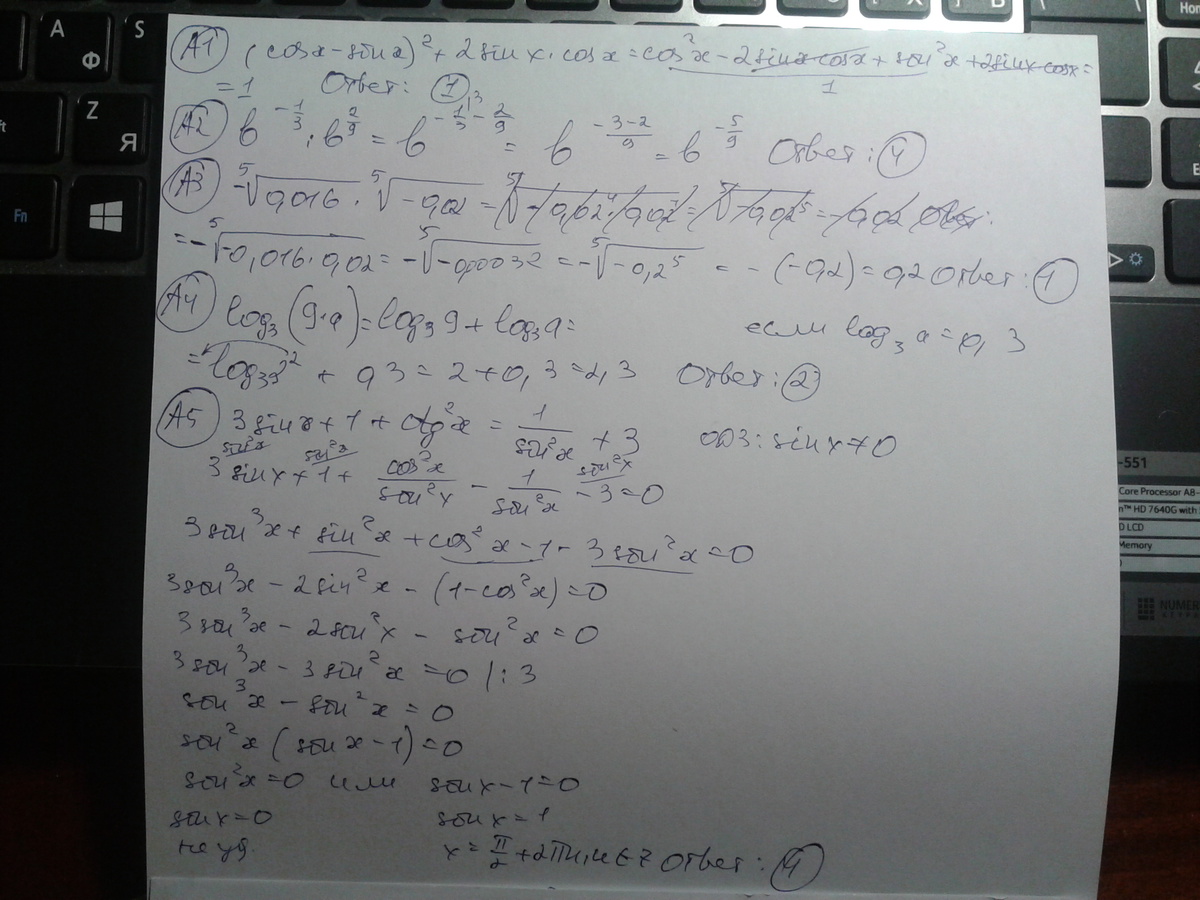 A1 (cosx - sinx)² + 2sinx·cosx = cos²x - 2sinx·cosx + sin²x + 2sinx·cosx =
= 1 Ответ: 1
1
A2 b^(-1/3) : b^(2/9) = b^(-1/3 - 2/9) = b^((-3-2)/9) = b^(-5/9) Ответ: 4
A3 -⁵√0,016 · ⁵√-0,02 = ⁵√-0,02⁴·0,02 = ⁵√-0,02⁵ = -0,02 Ответ:
= -⁵√-0,016·0,02 = -⁵√-0,00032 = -⁵√-0,2⁵ = -(-0,2) = 0,2 Ответ: 1
A4 log₃(9·a) = log₃9 + log₃a = если log₃a = 0,3
= log₃3² + 0,3 = 2 + 0,3 = 2,3 Ответ: 2
A5 3sinx + 1 + ctg²x = 1/sin²x + 3 ОДЗ: sinx ≠ 0
sin²x sin²x sin²x
3sinx + 1 + cos²x/sin²x - 1/sin²x - 3 = 0
3sin³x + sin²x + cos²x - 1 - 3sin²x = 0
3sin³x - 2sin²x - (1 - cos²x) = 0
3sin³x - 2sin²x - sin²x = 0
3sin³x - 3sin²x = 0 |:3
sin³x - sin²x = 0
sin²x (sinx - 1) = 0
sin²x = 0 или sinx - 1 = 0
sinx = 0 sinx = 1
не уд. x = π/2 + 2πn, n ∈ Z Ответ: 4
A
Ф
S
Z
Я
Fn
-551
Core Processor A8-
HD 7640G with
D LCD
Memory
NUMER